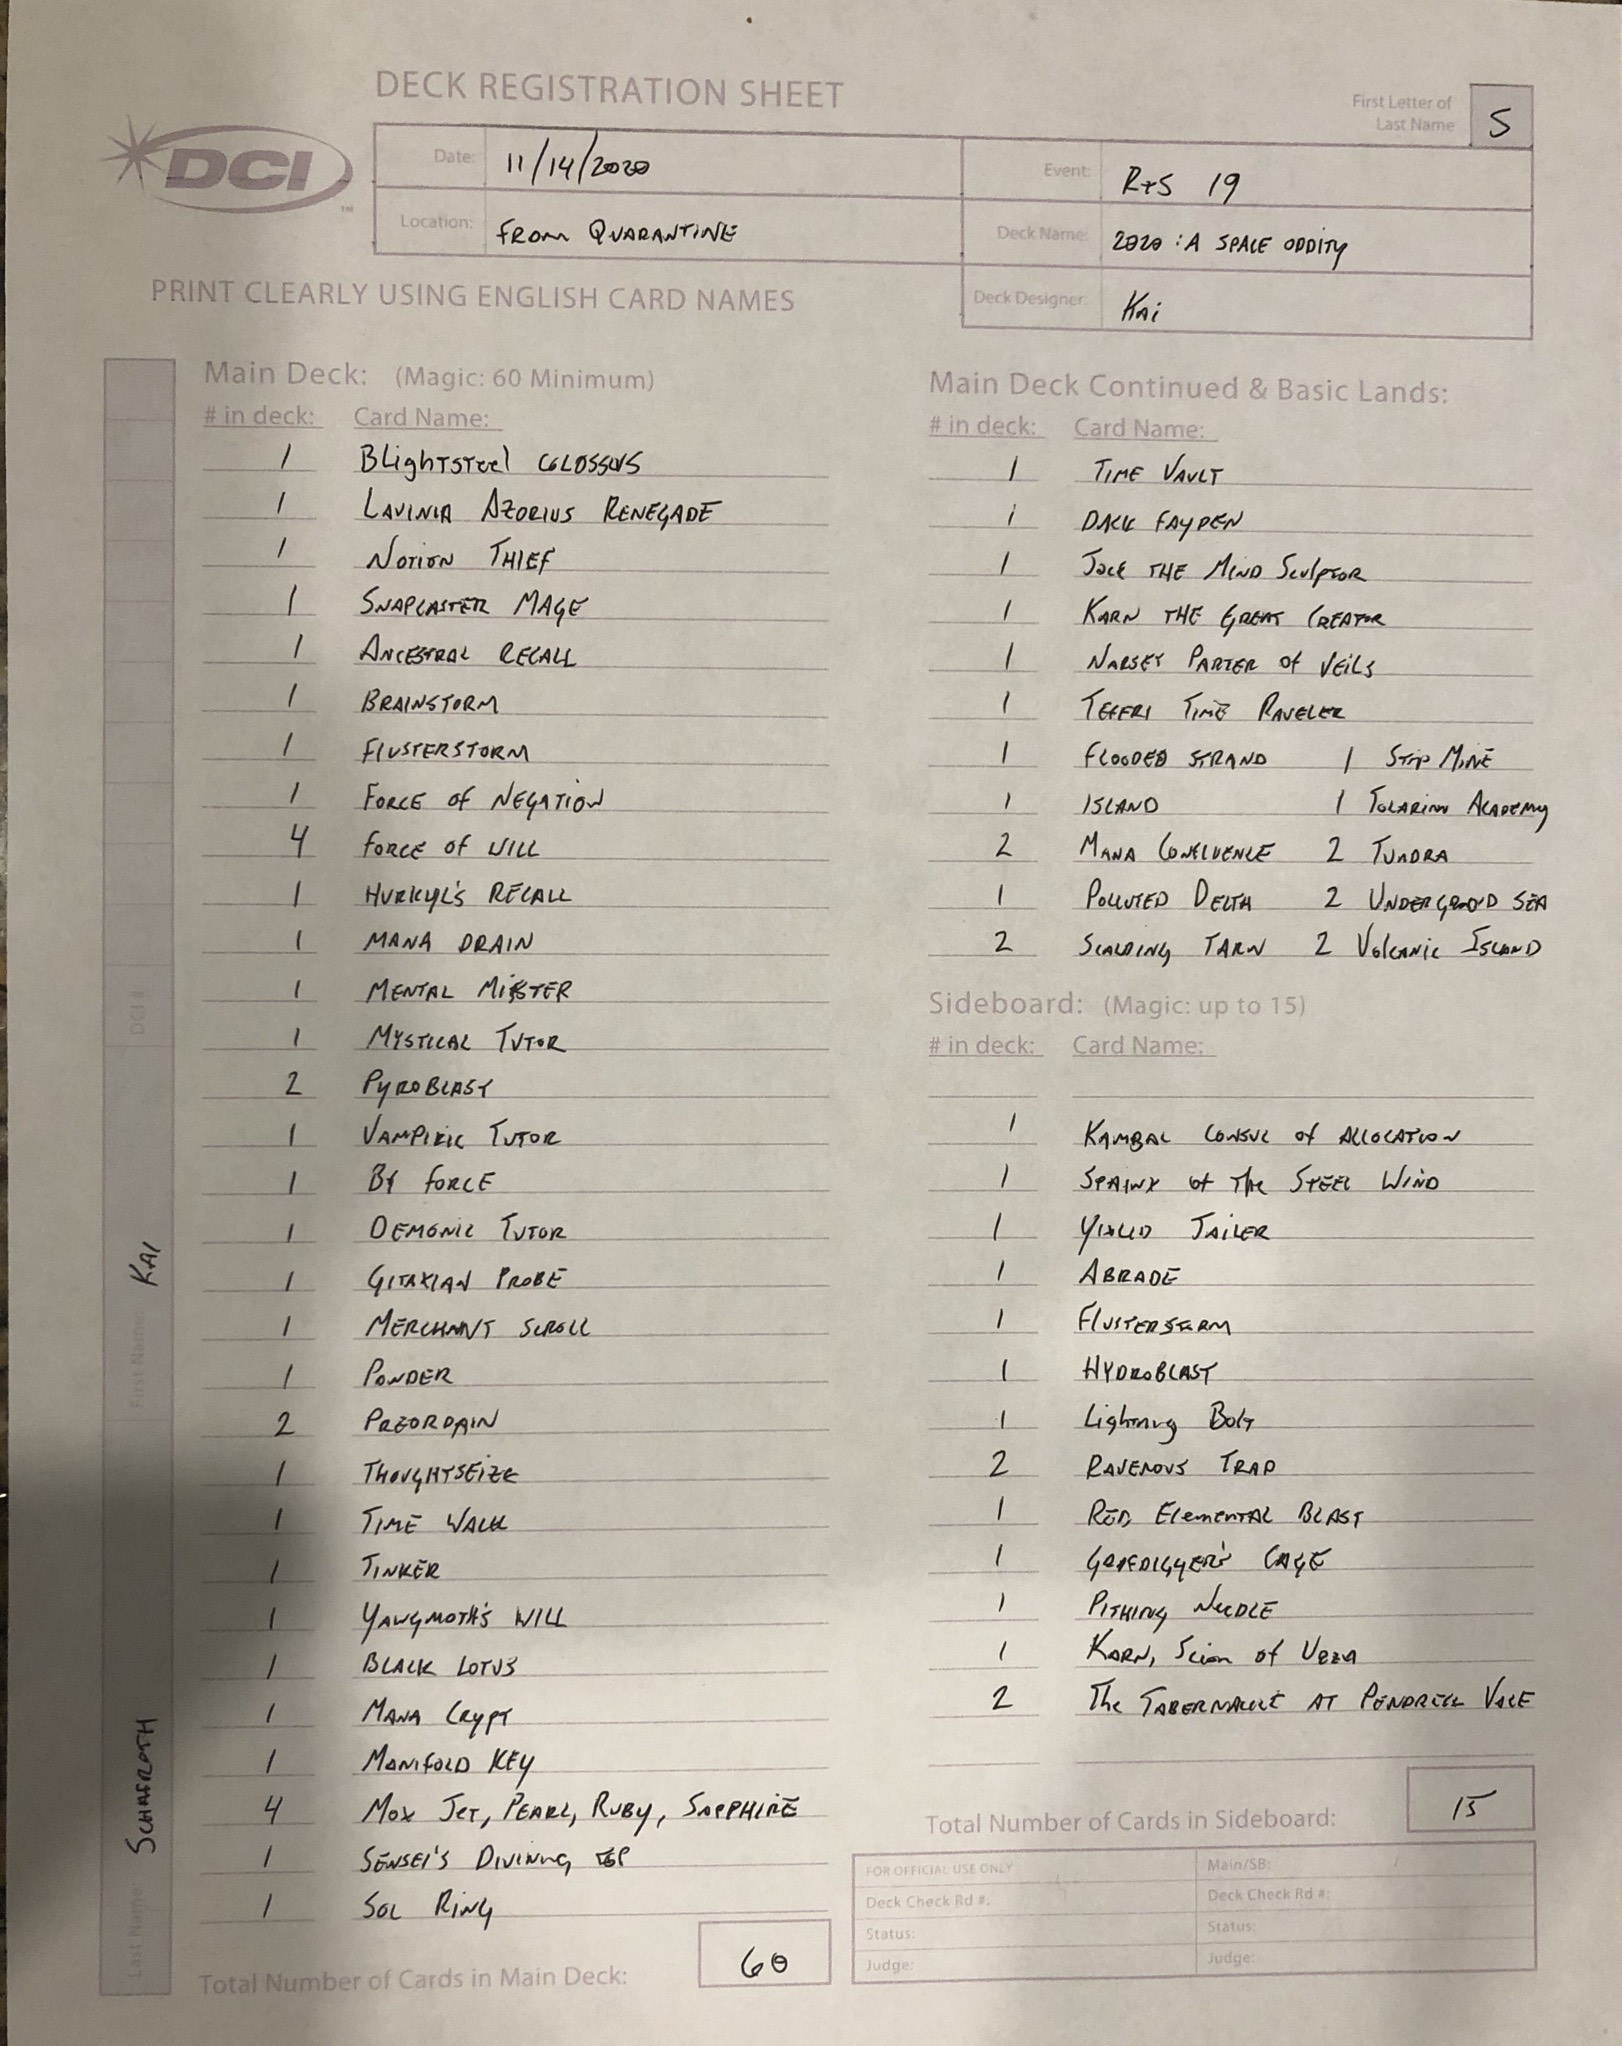 DECK REGISTRATION SHEET
First Letter of
Last Name
S
DCI
Date: 11/14/2020
Event: R+S 19
Location: FROM QUARANTINE
Deck Name: 2020: A SPACE ODDITY
Deck Designer: KAi
PRINT CLEARLY USING ENGLISH CARD NAMES
Main Deck: (Magic: 60 Minimum)
# in deck: Card Name:
1 BLightsteel COLOSSUS
1 LAVINIA AZORIUS RENEGADE
1 NOTION THIEF
1 SNAPCASTER MAGE
1 ANCESTRAL RECALL
1 BRAINSTORM
1 FLUSTERSTORM
1 FORCE of NEGATION
4 FORCE of WILL
1 HURKYL'S RECALL
1 MANA DRAIN
1 MENTAL MISSTEP
1 MYSTICAL TUTOR
2 PYROBLAST
1 VAMPIRIC TUTOR
1 BY FORCE
1 DEMONIC TUTOR
1 GITAXIAN PROBE
1 MERCHANT SCROLL
1 PONDER
2 PREORDAIN
1 THOUGHTSEIZE
1 TIME WALK
1 TINKER
1 YAWGMOTH'S WILL
1 BLACK LOTUS
1 MANA CRYPT
1 MANIFOLD KEY
4 MOX JET, PEARL, RUBY, SAPPHIRE
1 SENSEI'S DIVINING TOP
1 SOL RING
Total Number of Cards in Main Deck: 60
Main Deck Continued & Basic Lands:
# in deck: Card Name:
1 TIME VAULT
1 DACK FAYDEN
1 JACE THE MIND SCULPTOR
1 KARN THE GREAT CREATOR
1 NARSET PARTER of VEILS
1 TEFERI TIME RAVELER
1 FLOODED STRAND 1 STRIP MINE
1 ISLAND 1 TOLARIAN ACADEMY
2 MANA CONFLUENCE 2 TUNDRA
1 POLLUTED DELTA 2 UNDERGROUND SEA
2 SCALDING TARN 2 VOLCANIC ISLAND
Sideboard: (Magic: up to 15)
# in deck: Card Name:
1 KAMBAL CONSUL of ALLOCATION
1 SPHINX of The STEEL WIND
1 YIXLID JAILER
1 ABRADE
1 FLUSTERSTORM
1 HYDROBLAST
1 Lightning Bolt
2 RAVENOUS TRAP
1 RED ElemenTAL BLAST
1 GRAFDIGGER'S CAGE
1 PITHING NEEDLE
1 KARN, Scion of URZA
2 The TABERNACLE AT PENDRELL VALE
Total Number of Cards in Sideboard: 15
FOR OFFICIAL USE ONLY
Main/SB:
Deck Check Rd #:
Deck Check Rd #:
Status:
Status:
Judge:
Judge:
Last Name SCHAFROTH
First Name KAI
DCI #